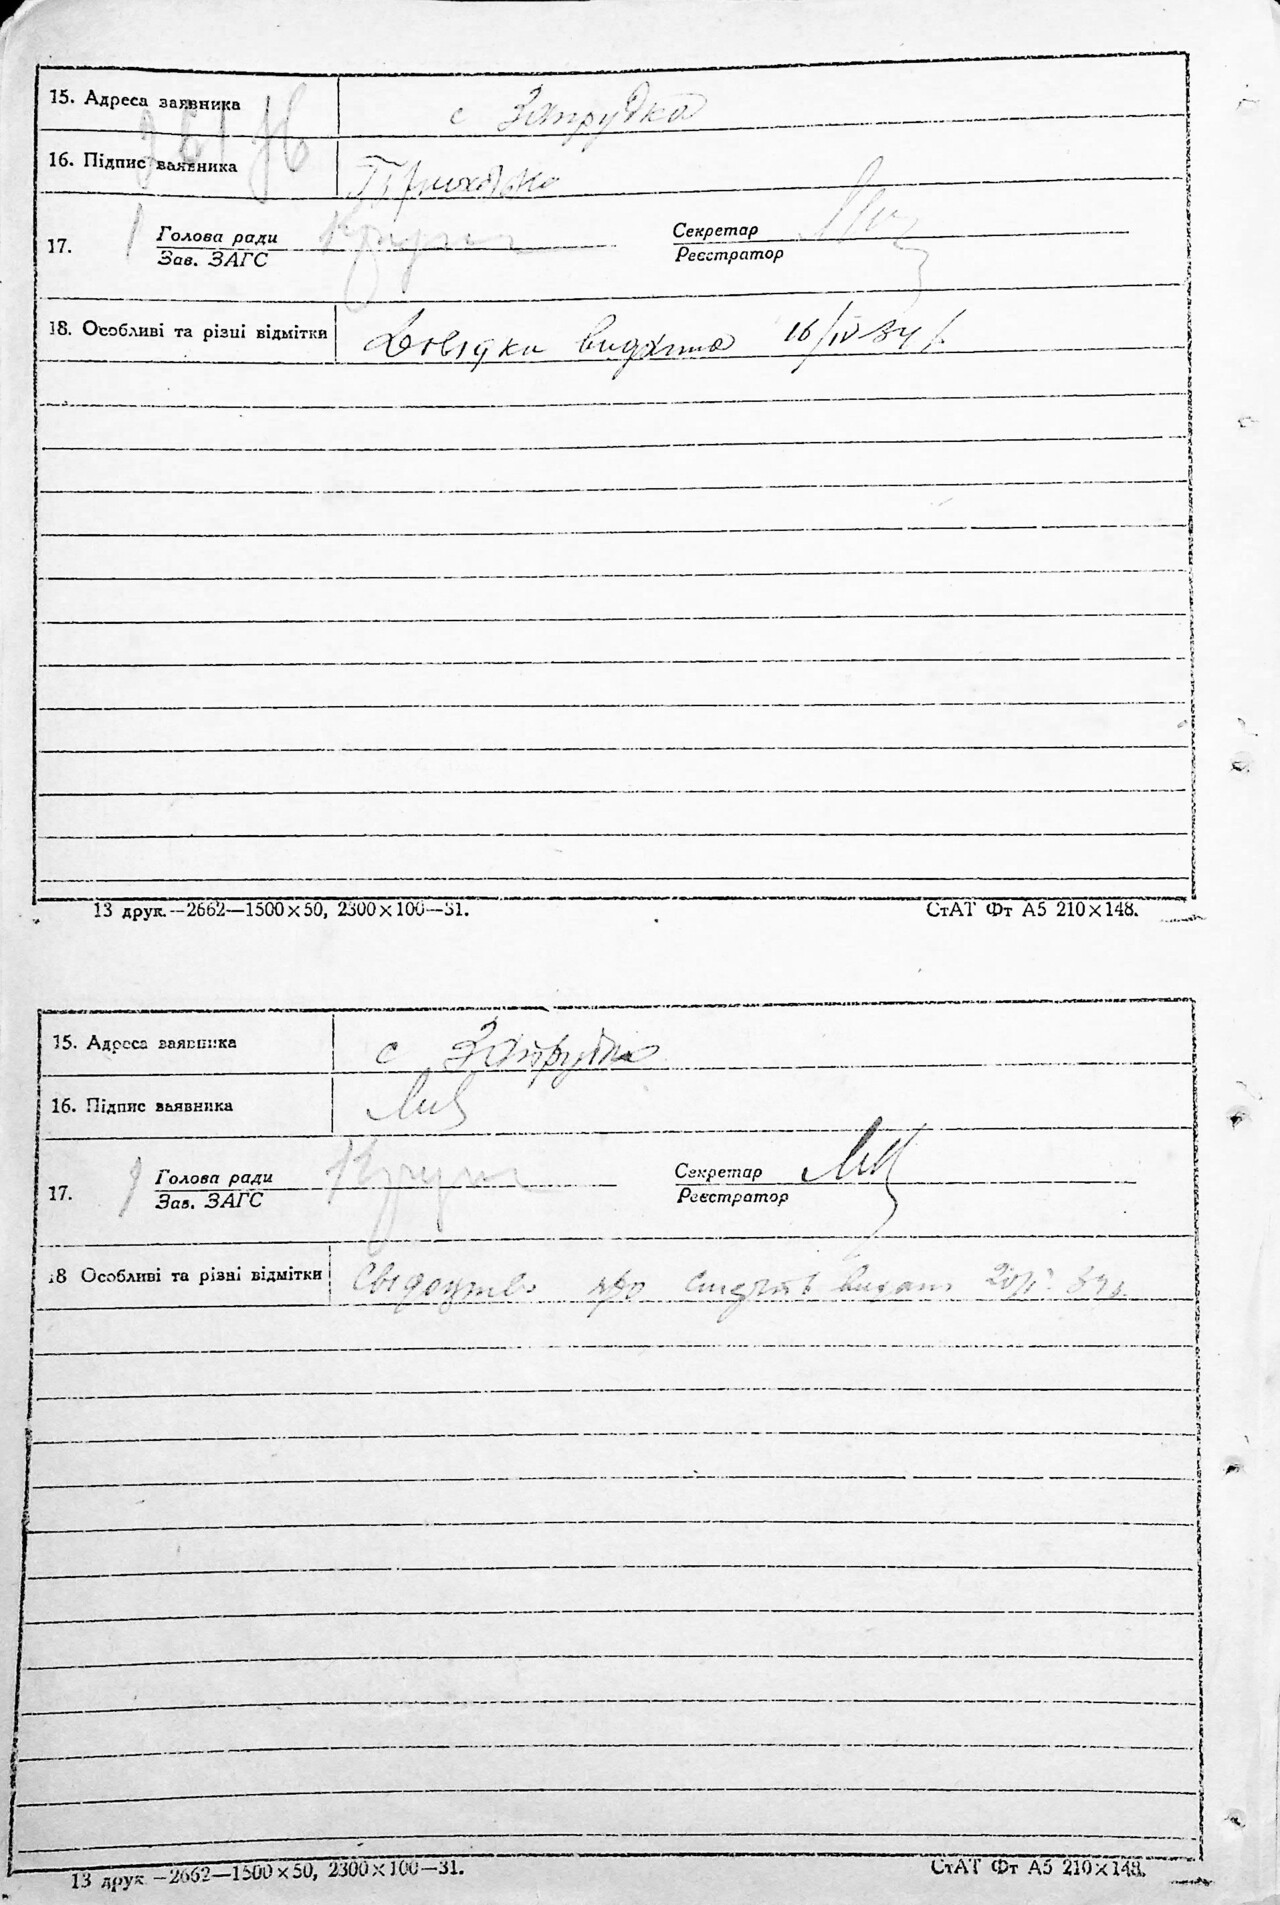 15. Адреса заявника с Запрудка
16. Підпис заявника Приходько
17. Голова ради Секретар
Зав. ЗАГС Реєстратор
18. Особливі та різні відмітки Довідки видано 16/IV 34 р.
13 друк.—2662—1500×50, 2300×100—31. СтАТ Фт А5 210×148.
15. Адреса заявника с Запрудка
16. Підпис заявника
17. Голова ради Секретар
Зав. ЗАГС Реєстратор
18 Особливі та різні відмітки про смерть 34 р.
13 друк —2662—1500×50, 2300×100—31. СтАТ Фт А5 210×148.